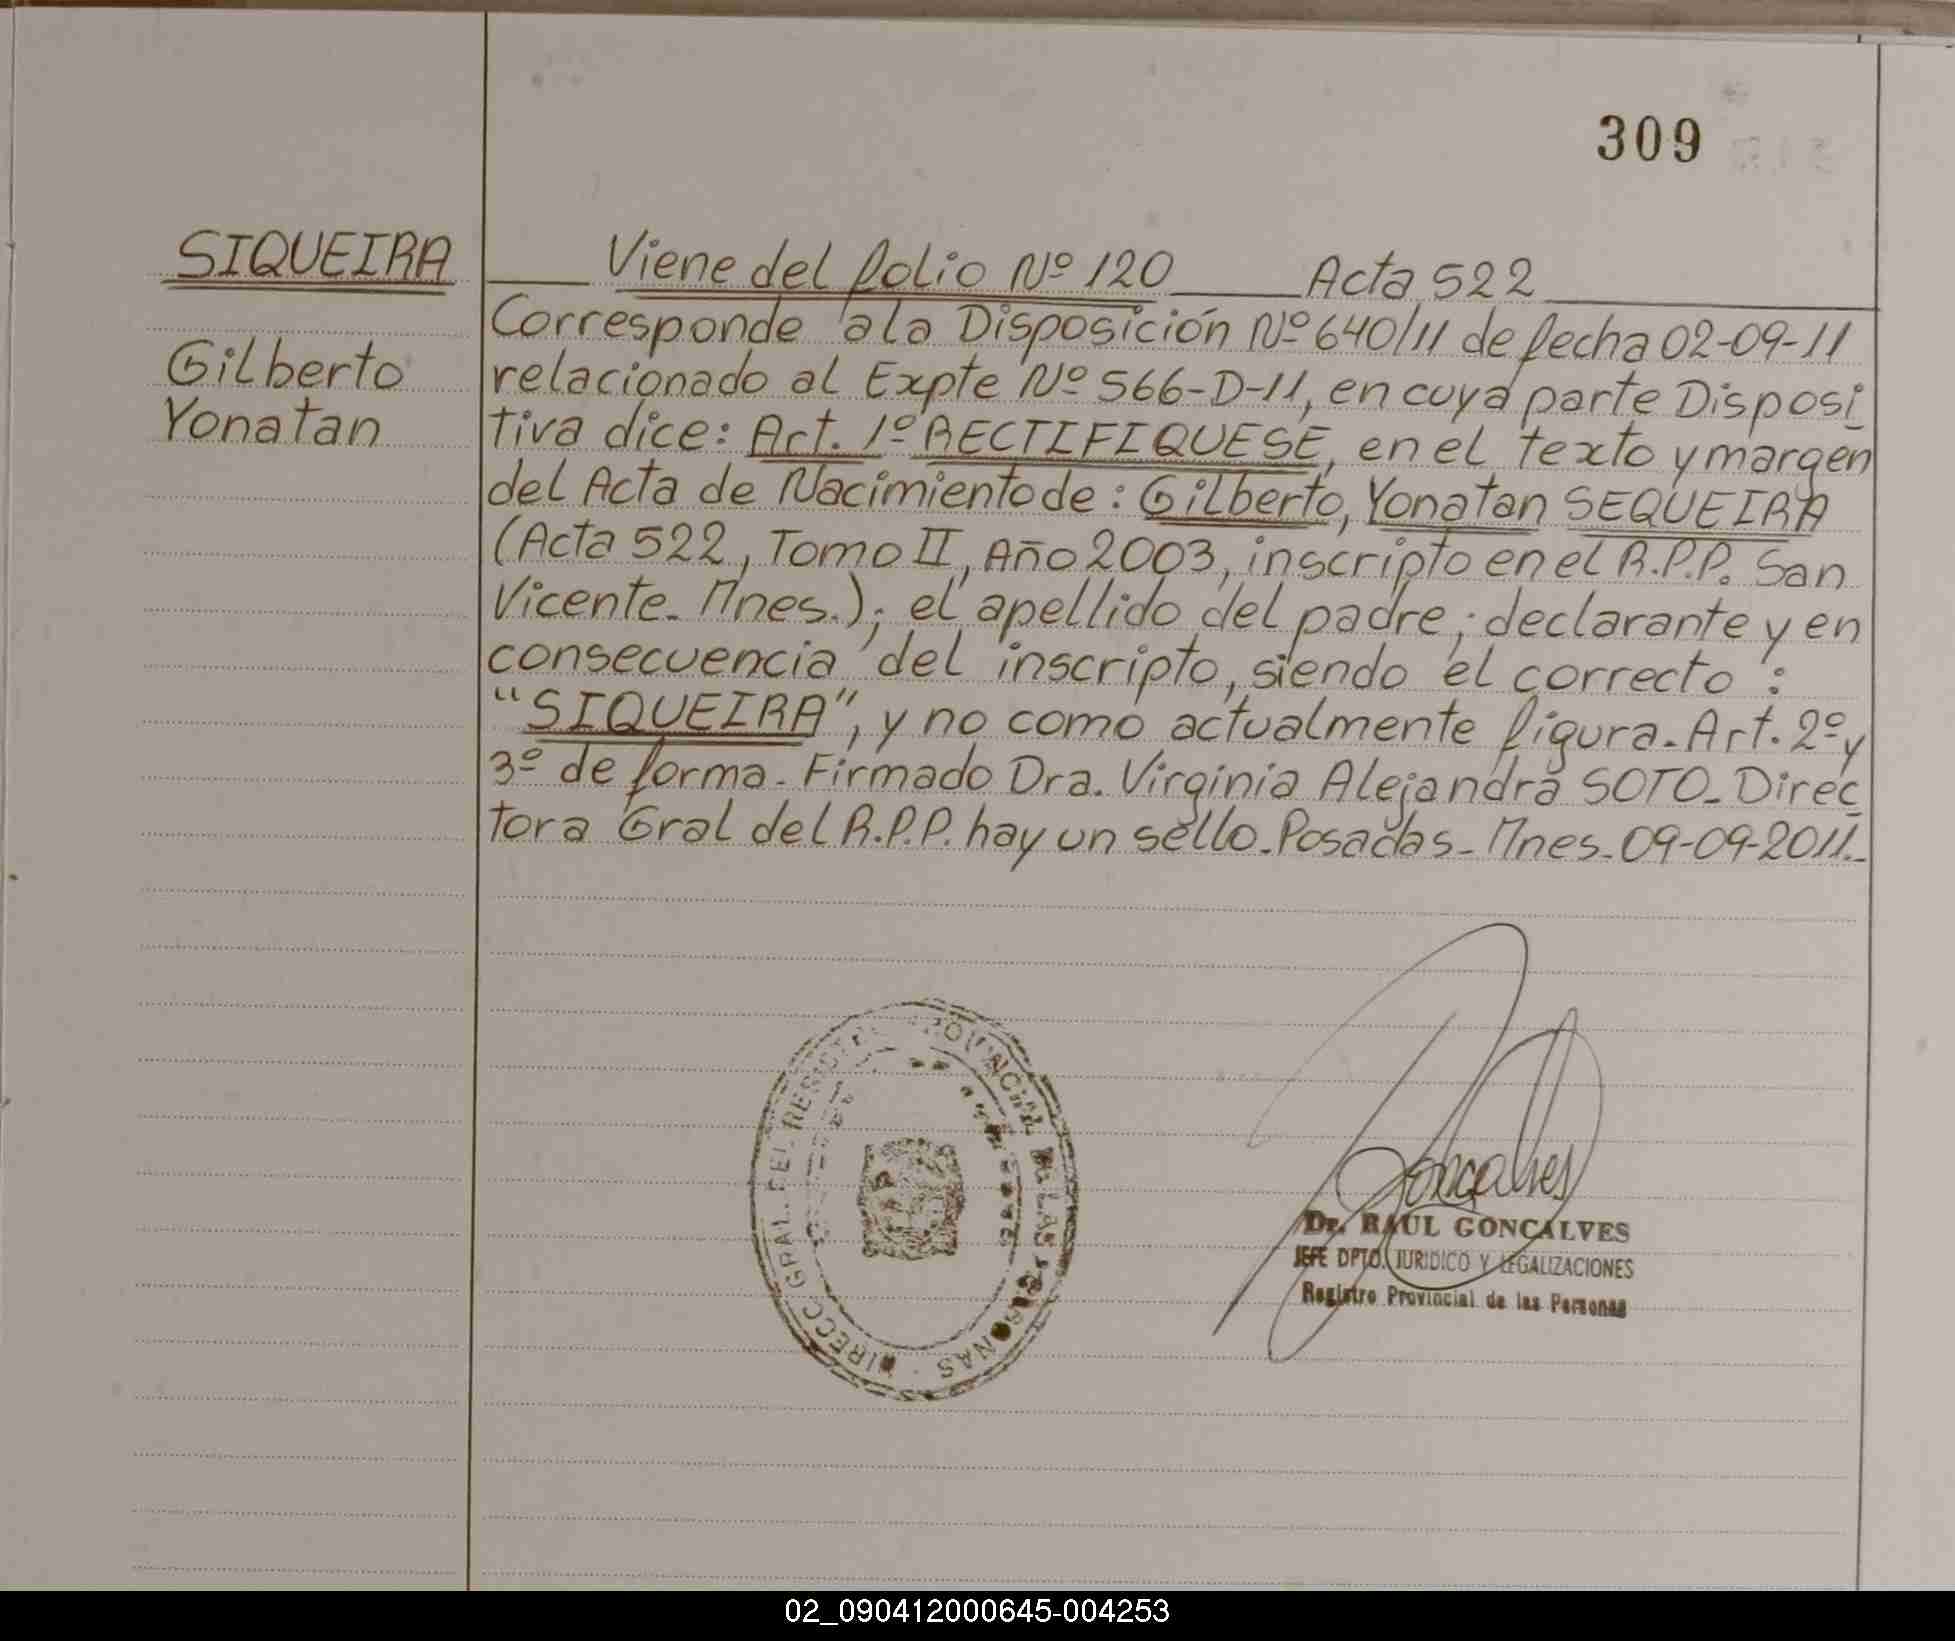 309
SIQUEIRA
Gilberto
Yonatan
Viene del folio Nº 120 Acta 522
Corresponde a la Disposición Nº 640/11 de fecha 02-09-11
relacionado al Expte Nº 566-D-11, en cuya parte Disposi
tiva dice: Art. 1º RECTIFIQUESE, en el texto y margen
del Acta de Nacimiento de: Gilberto, Yonatan SEQUEIRA
(Acta 522, Tomo II, Año 2003, inscripto en el R.P.P. San
Vicente - Mnes.); el apellido del padre; declarante y en
consecuencia del inscripto, siendo el correcto:
"SIQUEIRA", y no como actualmente figura. Art. 2º y
3º de forma - Firmado Dra. Virginia Alejandra SOTO - Direc
tora Gral del R.P.P. hay un sello - Posadas - Mnes - 09-09-2011.-
DIRECC GRAL. DEL REGISTRO PROVINCIAL DE LAS PERSONAS
Goncalves
Dr. RAUL GONCALVES
JEFE DPTO. JURIDICO Y LEGALIZACIONES
Registro Provincial de las Personas
02_090412000645-004253